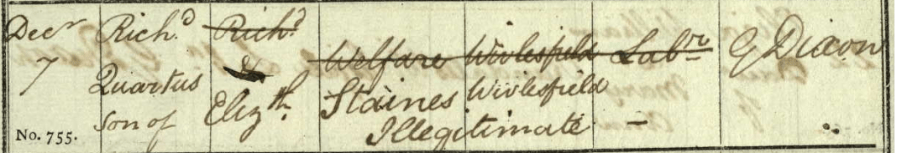 Decr Richd. Richd.
& Welfare Wivlesfield Labr. G Dixon
7 Quartus
Elizth. Staines Wivlesfield
Son of
Illegitimate –
No. 755.